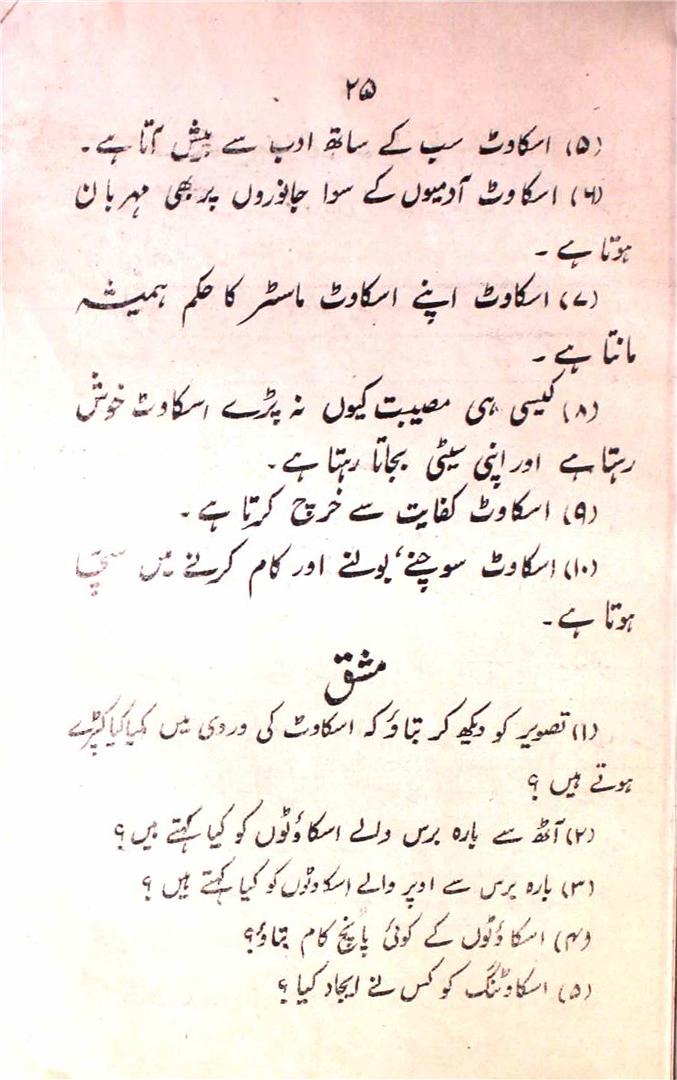 ۲۵
(۵) اسکاوٹ سب کے ساتھ ادب سے پیش آتا ہے۔
(۶) اسکاوٹ آدمیوں کے سوا جانوروں پر بھی مہربان
ہوتا ہے۔
(۷) اسکاوٹ اپنے اسکاوٹ ماسٹر کا حکم ہمیشہ
مانتا ہے۔
(۸) کیسی ہی مصیبت کیوں نہ پڑے اسکاوٹ خوش
رہتا ہے اور اپنی سیٹی بجاتا رہتا ہے۔
(۹) اسکاوٹ کفایت سے خرچ کرتا ہے۔
(۱۰) اسکاوٹ سوچنے، بولنے اور کام کرنے میں سچّا
ہوتا ہے۔
مشق
(۱) تصویر کو دیکھ کر بتاؤ کہ اسکاوٹ کی وردی میں کیا کیا کپڑے
ہوتے ہیں ؟
(۲) آٹھ سے بارہ برس والے اسکاؤٹوں کو کیا کہتے ہیں؟
(۳) بارہ برس سے اوپر والے اسکاوٹوں کو کیا کہتے ہیں ؟
(۴) اسکاؤٹوں کے کوئی پانچ کام بتاؤ؟
(۵) اسکاوٹنگ کو کس نے ایجاد کیا ؟